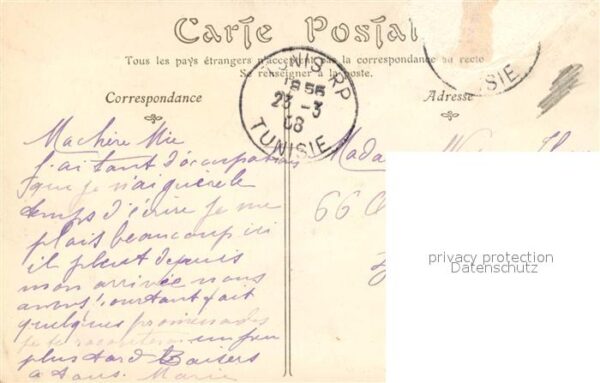 Carte Postale
Tous les pays étrangers n'acceptent pas la correspondance au recto
Se renseigner à la poste.
Correspondance
Adresse
TUNIS R.P
1855
23 - 3
08
TUNISIE
SIE
Ma chère Mie
J'ai tant d'occupation
que je n'ai guère le
temps d'écrire je me
plais beaucoup ici
il pleut depuis
mon arrivée nous
avons pourtant fait
quelques promenades
je te raconterai un peu
plus tard Baisers
à tous. Marie
Mada
66
privacy protection
Datenschutz